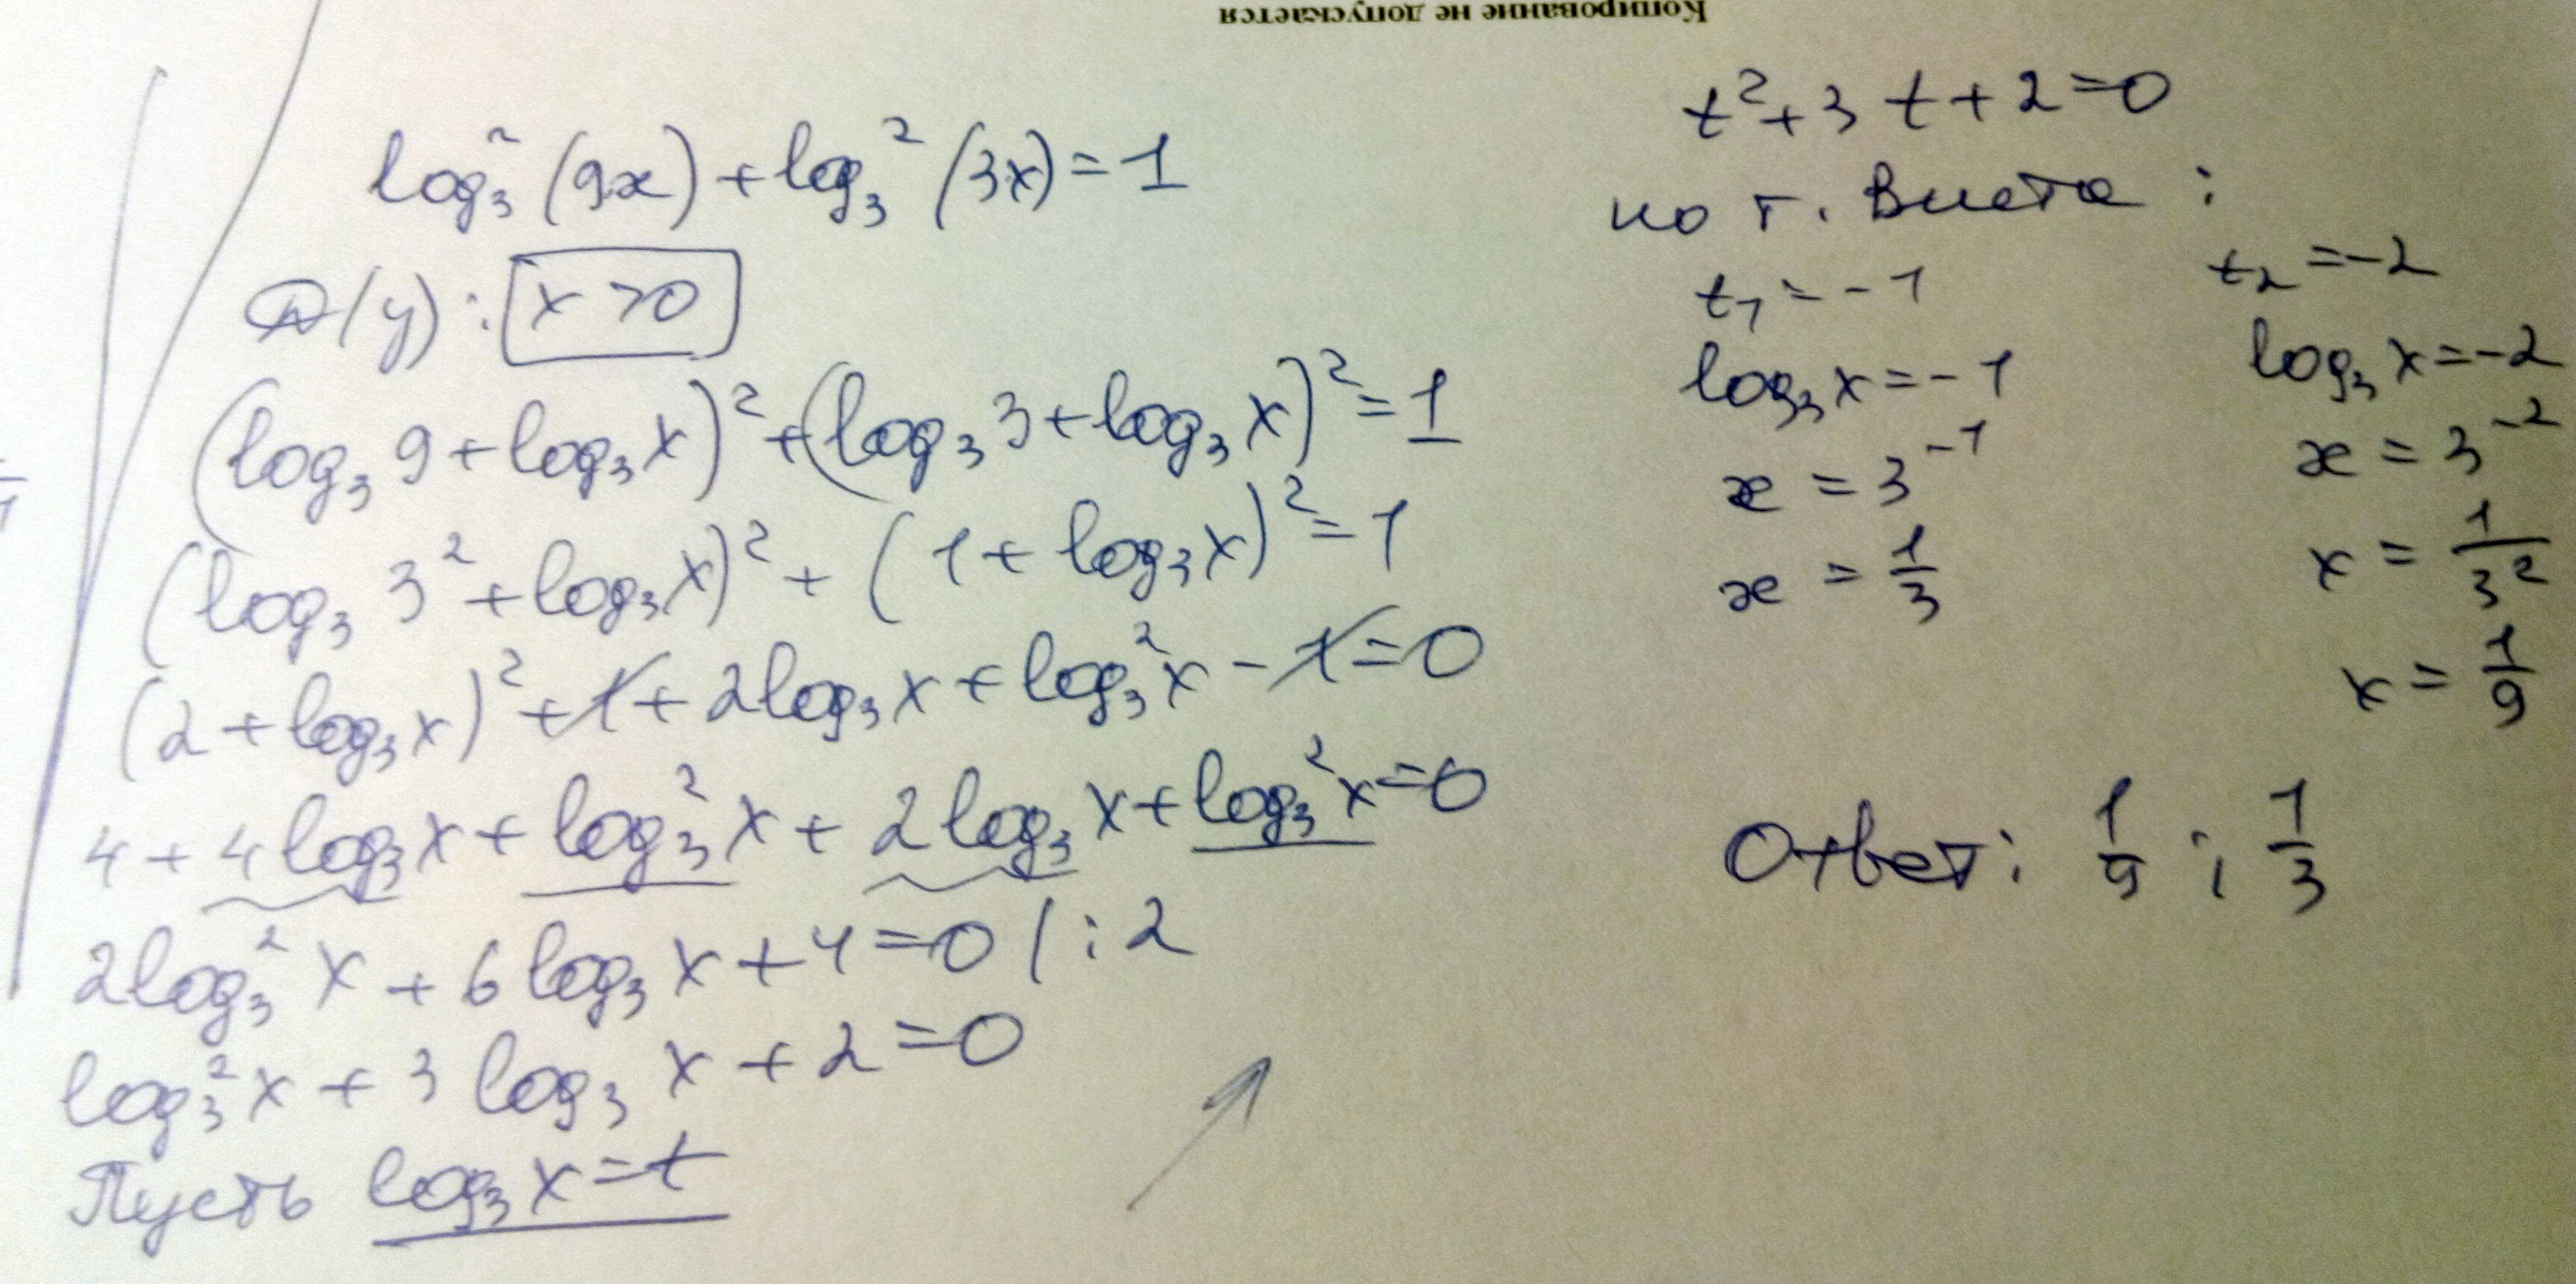 Копирование не допускается
log₃²(9x) + log₃²(3x) = 1
D(y): x > 0
(log₃ 9 + log₃ x)² + (log₃ 3 + log₃ x)² = 1
(log₃ 3² + log₃ x)² + (1 + log₃ x)² = 1
(2 + log₃ x)² + 1 + 2log₃ x + log₃² x - 1 = 0
4 + 4log₃ x + log₃² x + 2log₃ x + log₃² x = 0
2log₃² x + 6log₃ x + 4 = 0 | : 2
log₃² x + 3 log₃ x + 2 = 0
Пусть log₃ x = t
t² + 3t + 2 = 0
по т. Виета :
t₁ = -1 t₂ = -2
log₃ x = -1 log₃ x = -2
x = 3⁻¹ x = 3⁻²
x = 1/3 x = 1/3²
x = 1/9
Ответ: 1/9 ; 1/3